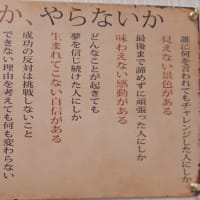 か、やらないか
誰に何を言われてもチャレンジした人にしか
見えない景色がある
最後まで諦めずに頑張った人にしか
味わえない感動がある
どんなことが起きても
夢を信じ続けた人にしか
生まれてこない自信がある
成功の反対は挑戦しないこと
できない理由を考えても何も変わらない